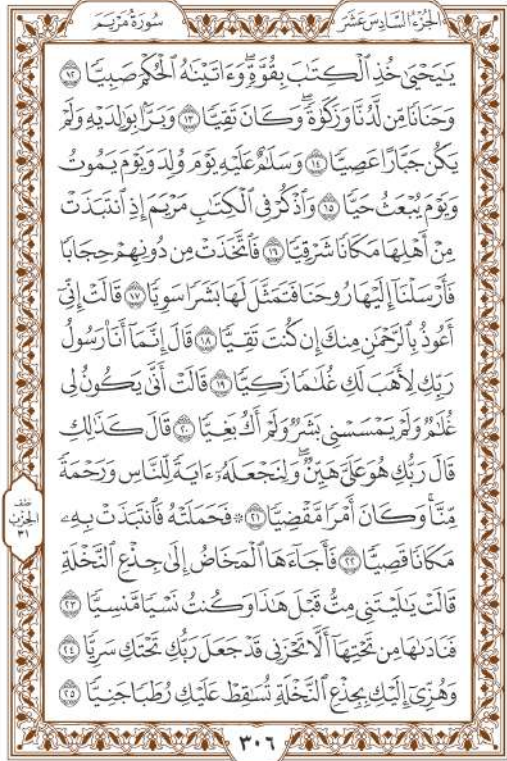 الجُزْءُ السَّادِسَ عَشَرَ
سُورَةُ مَرْيَمَ
يَٰيَحْيَىٰ خُذِ ٱلْكِتَٰبَ بِقُوَّةٖۖ وَءَاتَيْنَٰهُ ٱلْحُكْمَ صَبِيّٗا ١٢
وَحَنَانٗا مِّن لَّدُنَّا وَزَكَوٰةٗۖ وَكَانَ تَقِيّٗا ١٣ وَبَرَّۢا بِوَٰلِدَيْهِ وَلَمْ
يَكُن جَبَّارًا عَصِيّٗا ١٤ وَسَلَٰمٌ عَلَيْهِ يَوْمَ وُلِدَ وَيَوْمَ يَمُوتُ
وَيَوْمَ يُبْعَثُ حَيّٗا ١٥ وَٱذْكُرْ فِي ٱلْكِتَٰبِ مَرْيَمَ إِذِ ٱنتَبَذَتْ
مِنْ أَهْلِهَا مَكَانٗا شَرْقِيّٗا ١٦ فَٱتَّخَذَتْ مِن دُونِهِمْ حِجَابٗا
فَأَرْسَلْنَآ إِلَيْهَا رُوحَنَا فَتَمَثَّلَ لَهَا بَشَرٗا سَوِيّٗا ١٧ قَالَتْ إِنِّيٓ
أَعُوذُ بِٱلرَّحْمَٰنِ مِنكَ إِن كُنتَ تَقِيّٗا ١٨ قَالَ إِنَّمَآ أَنَا۠ رَسُولُ
رَبِّكِ لِأَهَبَ لَكِ غُلَٰمٗا زَكِيّٗا ١٩ قَالَتْ أَنَّىٰ يَكُونُ لِي
غُلَٰمٞ وَلَمْ يَمْسَسْنِي بَشَرٞ وَلَمْ أَكُ بَغِيّٗا ٢٠ قَالَ كَذَٰلِكِ
قَالَ رَبُّكِ هُوَ عَلَيَّ هَيِّنٞۖ وَلِنَجْعَلَهُۥٓ ءَايَةٗ لِّلنَّاسِ وَرَحْمَةٗ
مِّنَّاۚ وَكَانَ أَمْرٗا مَّقْضِيّٗا ٢١ ۞ فَحَمَلَتْهُ فَٱنتَبَذَتْ بِهِۦ
مَكَانٗا قَصِيّٗا ٢٢ فَأَجَآءَهَا ٱلْمَخَاضُ إِلَىٰ جِذْعِ ٱلنَّخْلَةِ
قَالَتْ يَٰلَيْتَنِي مِتُّ قَبْلَ هَٰذَا وَكُنتُ نَسْيٗا مَّنسِيّٗا ٢٣
فَنَادَىٰهَا مِن تَحْتِهَآ أَلَّا تَحْزَنِي قَدْ جَعَلَ رَبُّكِ تَحْتَكِ سَرِيّٗا ٢٤
وَهُزِّيٓ إِلَيْكِ بِجِذْعِ ٱلنَّخْلَةِ تُسَٰقِطْ عَلَيْكِ رُطَبٗا جَنِيّٗا ٢٥
نصف
الحزب
٣١
٣٠٦